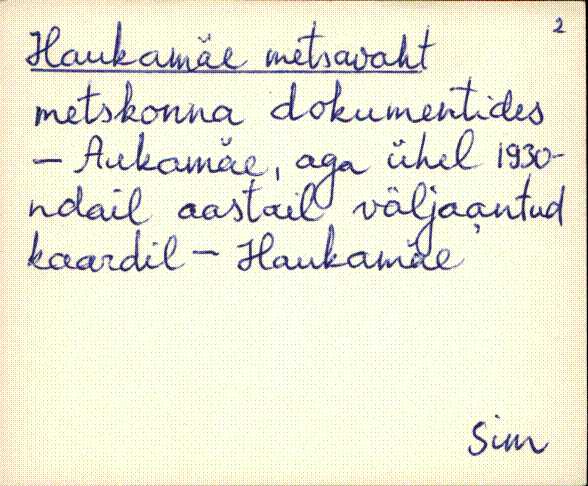 2
Haukamäe metsavaht
metskonna dokumentides
– Aukamäe, aga ühel 1930-
ndail aastail väljaantud
kaardil – Haukamäe
Sim